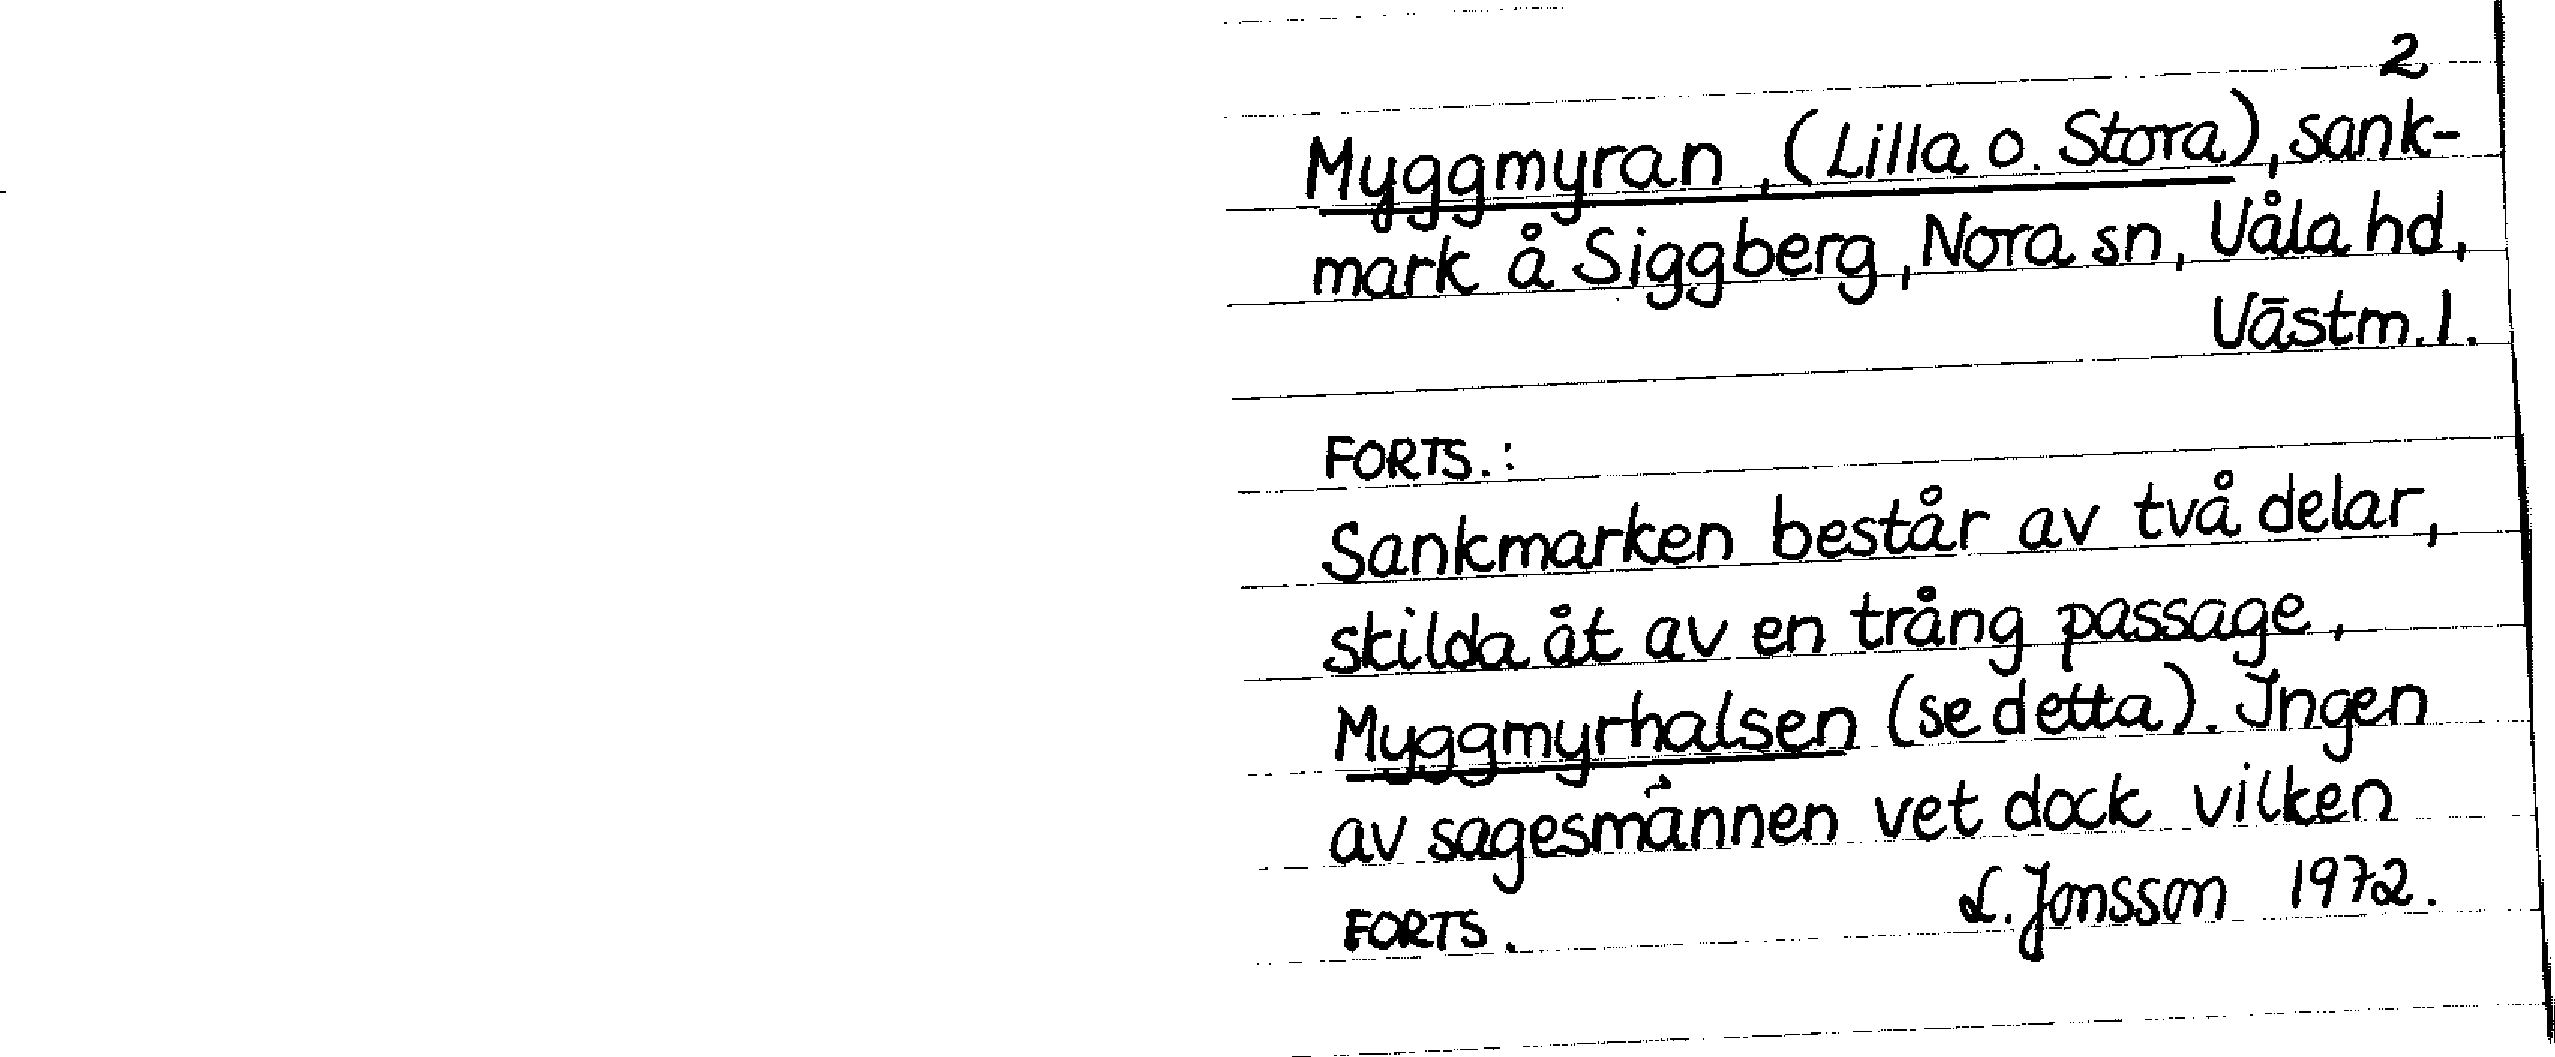 2
Myggmyran, (Lilla o. Stora), sank-
mark å Siggberg, Nora sn, Våla hd,
Västm. l.
FORTS.:
Sankmarken består av två delar,
skilda åt av en trång passage,
Myggmyrhalsen (se detta). Ingen
av sagesmännen vet dock vilken
L. Jonsson 1972.
FORTS.